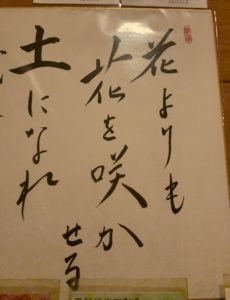 花よりも
花を咲かせる
土になれ